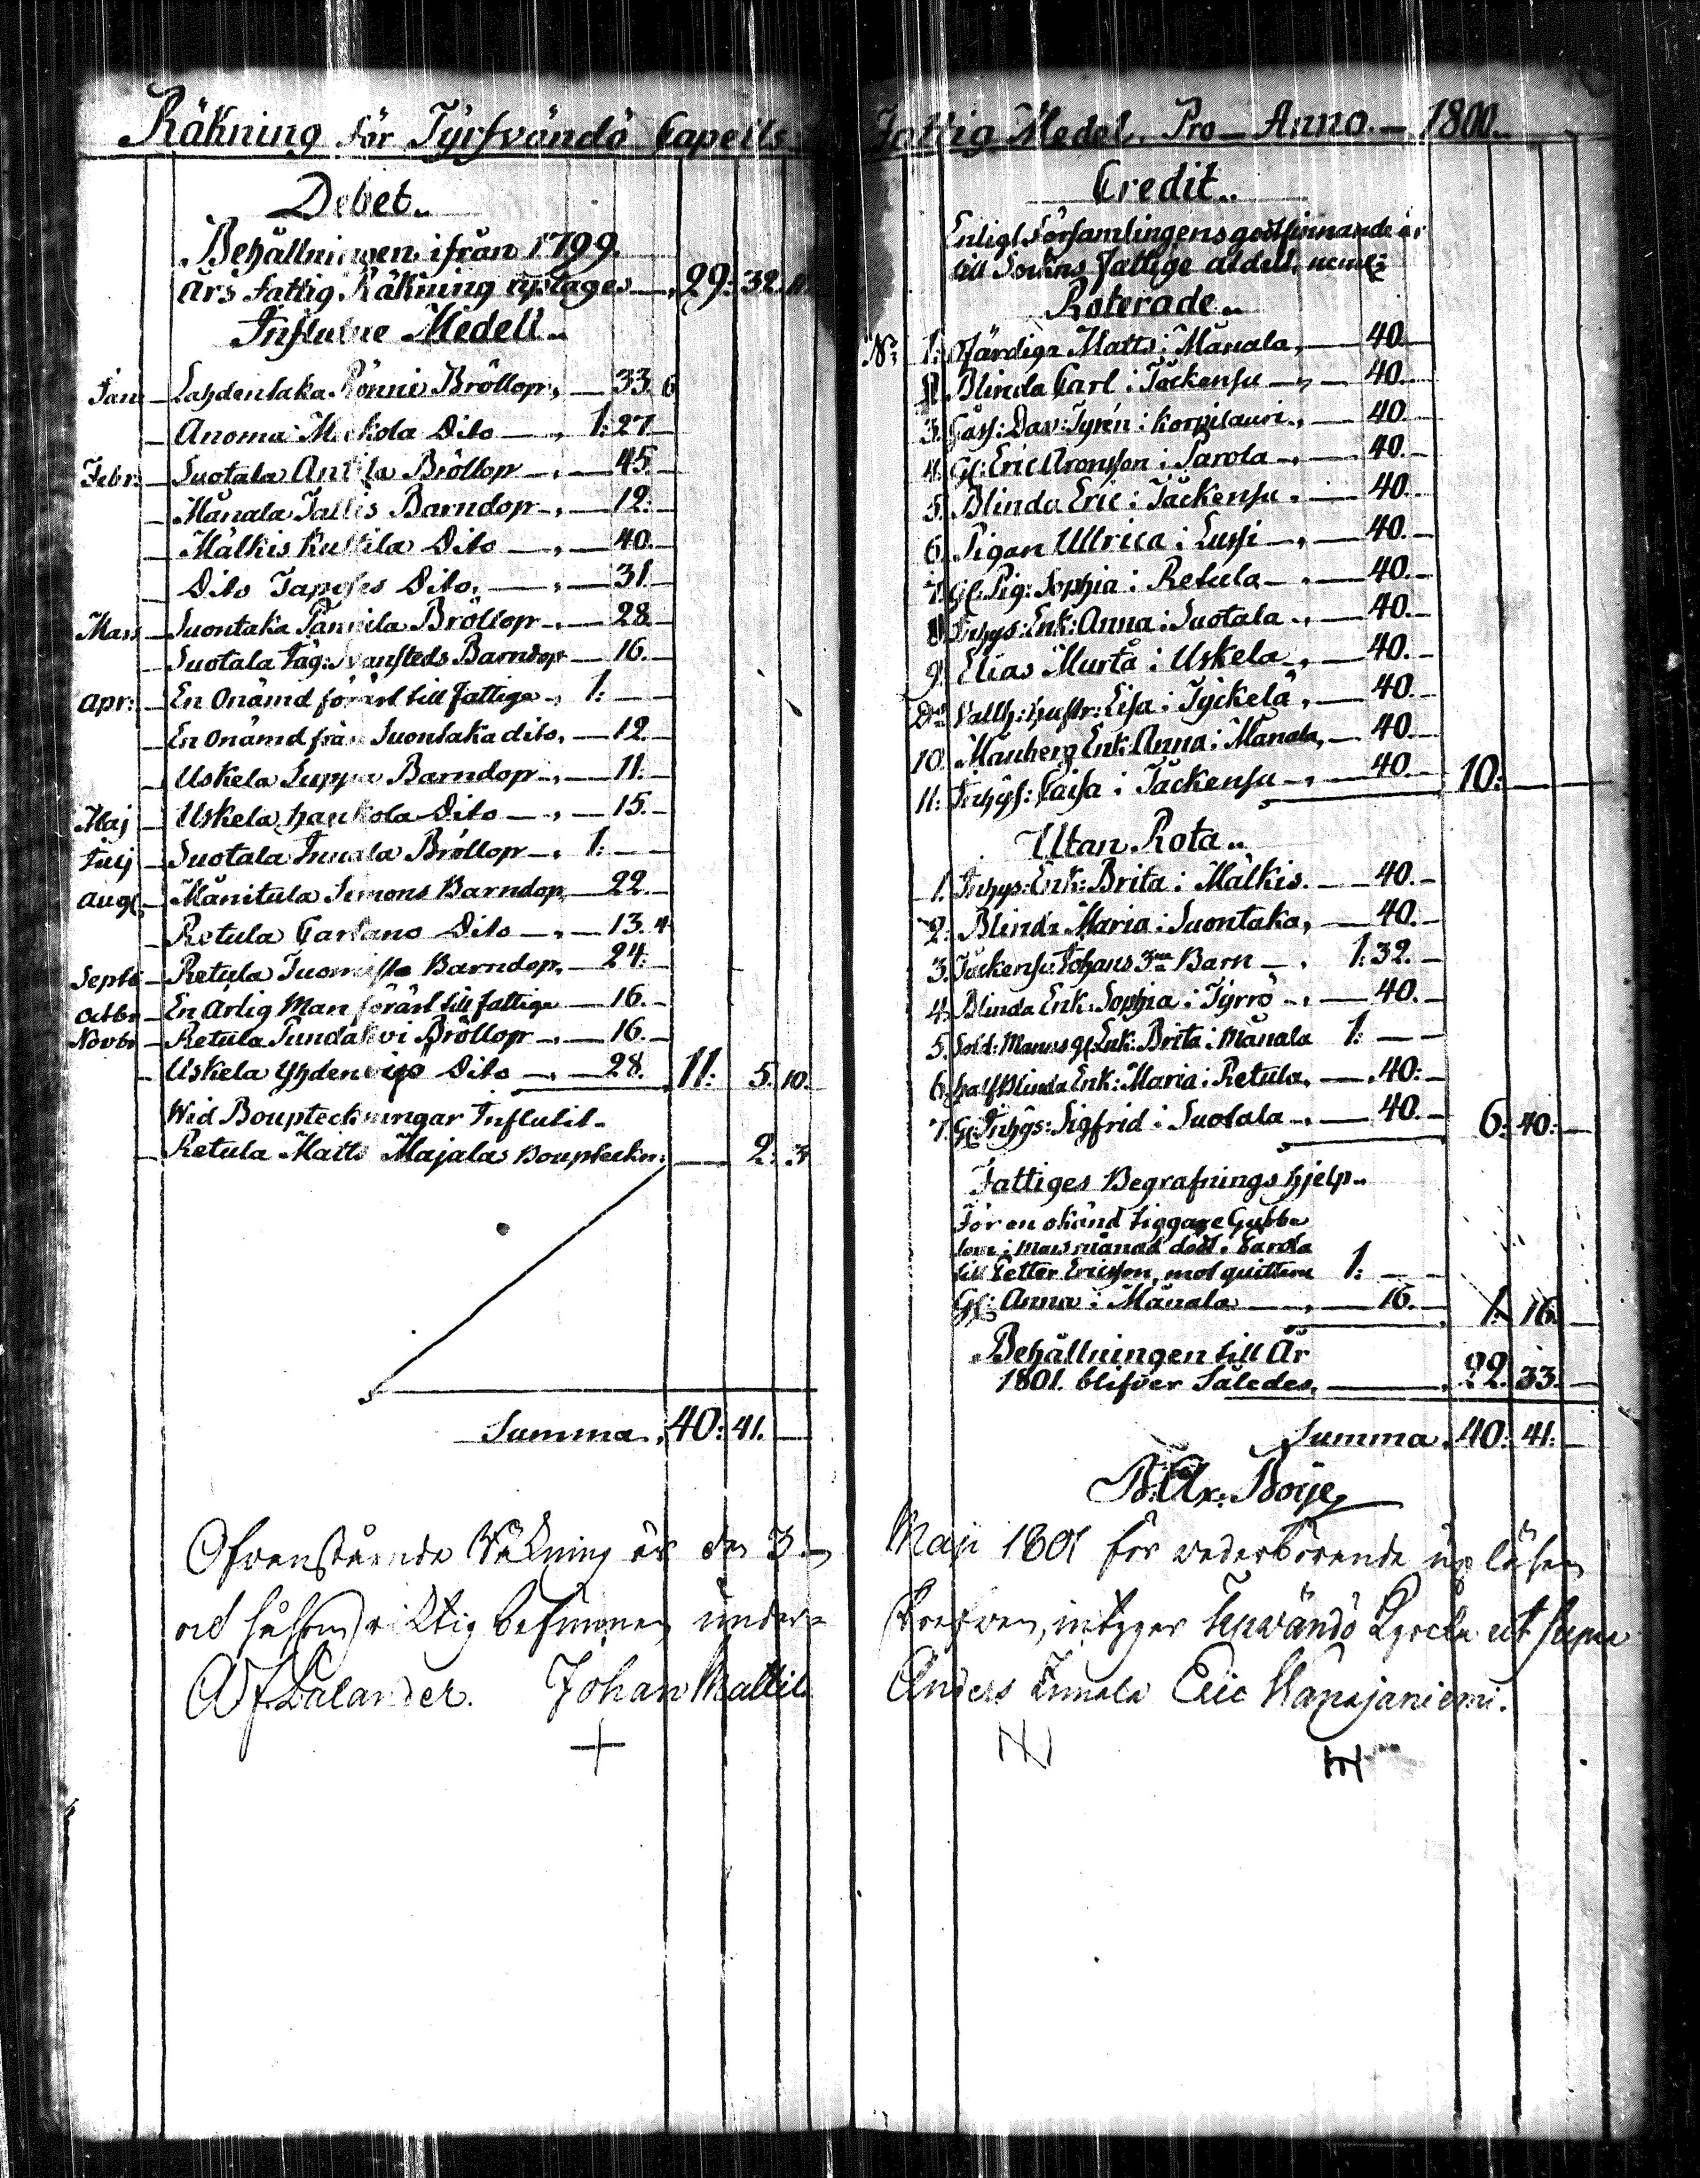 Räkning för Tyrfvändö Capells Fattig Medel. Pro Anno. 1800.
Debet.
Behållningen ifrån 1799.
Års Fattig Räkning uptages 29: 32.
Influtne Medell.
Jan Lahdentaka Rönni Bröllop, 33. 6
Anoma Dito 1: 27
Febr: Suotala Antila Bröllop 45.
Mänala Barndop 12:
Mälkis Dito 40.
Dito Dito, 31.
Mars Suontaka Bröllop 28.
Suotala Barndop 16.
Apr: En Onämd förärt till Fattiga 1:
En Onämd från Suontaka dito, 12
Uskela Barndop 11:
Maj Uskela Dito 15.
Julj Suotala Bröllop 1:
Aug: Mänitula Simons Barndop 22.
Retula Dito 13. 4
Septb Retula Barndop 24:
Octbr En Ärlig Man förärt till fattiga 16.
Novbr Retula Bröllop 16.
Uskela Dito 28. 11: 5. 10.
Wid Boupteckningar Influtit
Retula Matts Majalas Boupteckn: 2: 3
Summa. 40: 41.
Credit.
Enligt Församlingens godtfinnande är
till Sockns Fattige utdelt, neml:
Roterade.
No 1: Matts i Mänala, 40.
2. Blinda Carl i Täckensu 40.
3. Dav: Tyrén i Korpilauri 40.
4. Gl: Eric Aronsson i Parola 40.
5. Blinda Eric i Täckensu 40.
6. Pigan Ullrica i Lussi 40.
7. Gl: Pig: Sophia i Retula 40.
8. Inhys: Enk: Anna i Suotala 40.
9. Elias Murta i Uskela 40.
Do Vallh: hustr: Lisa i Tyckelä, 40.
10. Enk: Anna i Mänala, 40.
11: Inhys: Caisa i Täckensu 40. 10:
Utan Rota.
1. Inhys: Enk: Brita i Mälkis. 40.
2. Blinda Maria i Suontaka, 40.
3. Täckensu Johans 3ne Barn 1: 32.
4. Blinda Enk: Sophia i Tyrrö 40.
5. Sold: Manns gl: Enk: Brita i Mänala 1:
6. Half Blinda Enk: Maria i Retula, 40:
7. Gl: Inhys: Sigfrid i Suotala 40. 6: 40:
Fattiges Begrafnings hjelp.
För en okänd tiggare Gubbe
som i Mars månad dödt i Parola
till Petter Ericsson, mot quittens 1:
Gl: Anna i Mänala 16. 1: 16.
Behållningen till År
1801. blifver Således, 22. 33.
Summa. 40: 41:
B: Ax: Börje
Ofvanstående Räkning är den 3 Maji 1801 för vederbörande up läsen
och såsom riktig befunnen under skrefven, intygar Kyrcka ut supra
Lalander. Johan Mattil Anders Eric